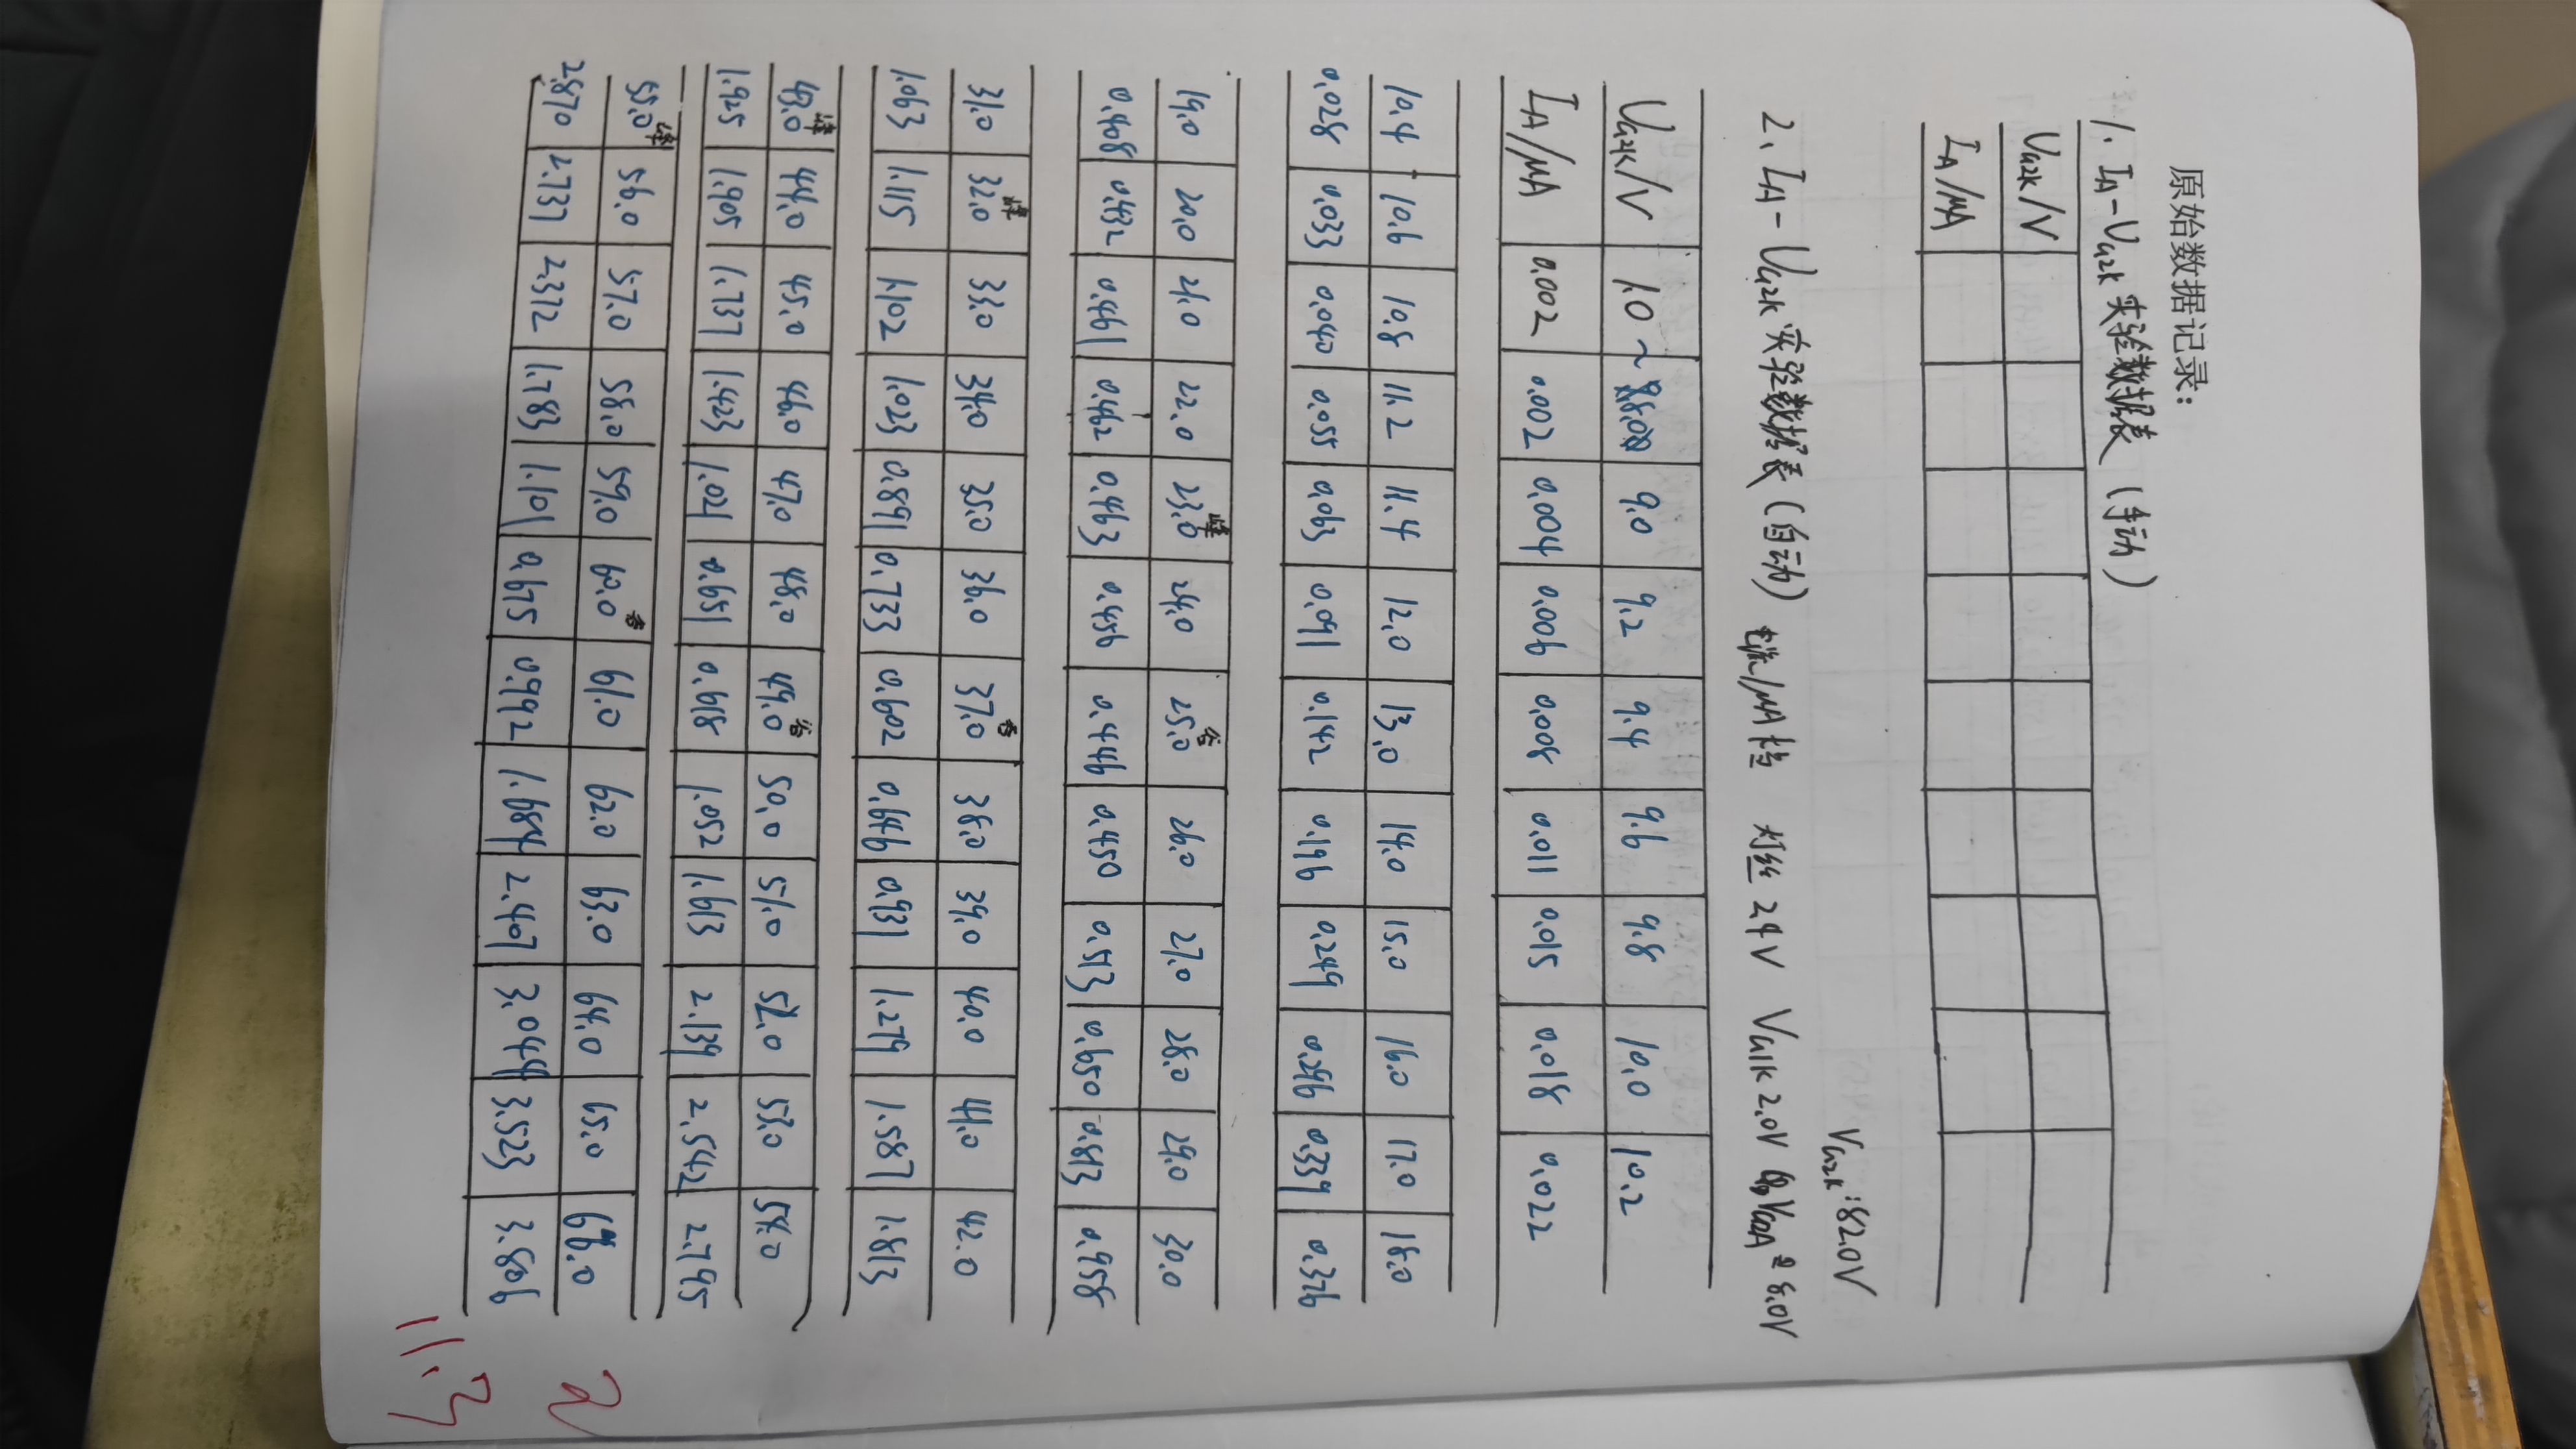 原始数据记录:
1. IA-UG2K 实验数据表 (手动)
UG2K/V
IA/μA
VG2K:82.0V
2、IA-UG2K 实验数据表(自动) 电流/μA档 灯丝 2.4V VG1K 2.0V VG2A 8.0V
UG2K/V 1.0 ~ 8.0 9.0 9.2 9.4 9.6 9.8 10.0 10.2
IA/μA 0.002 0.002 0.004 0.006 0.008 0.011 0.015 0.018 0.022
10.4 10.6 10.8 11.2 11.4 12.0 13.0 14.0 15.0 16.0 17.0 18.0
0.028 0.033 0.040 0.055 0.063 0.091 0.142 0.196 0.249 0.296 0.339 0.376
19.0 20.0 21.0 22.0 23.0 峰 24.0 25.0 谷 26.0 27.0 28.0 29.0 30.0
0.408 0.432 0.461 0.462 0.463 0.456 0.446 0.450 0.513 0.650 0.813 0.958
31.0 32.0 峰 33.0 34.0 35.0 36.0 37.0 谷 38.0 39.0 40.0 41.0 42.0
1.063 1.115 1.102 1.023 0.891 0.733 0.602 0.646 0.931 1.279 1.587 1.813
43.0 峰 44.0 45.0 46.0 47.0 48.0 49.0 谷 50.0 51.0 52.0 53.0 54.0
1.925 1.905 1.737 1.423 1.021 0.651 0.618 1.052 1.613 2.139 2.542 2.795
55.0 峰 56.0 57.0 58.0 59.0 60.0 谷 61.0 62.0 63.0 64.0 65.0 66.0
2.870 2.737 2.372 1.783 1.101 0.675 0.992 1.684 2.407 3.044 3.523 3.806
11.3